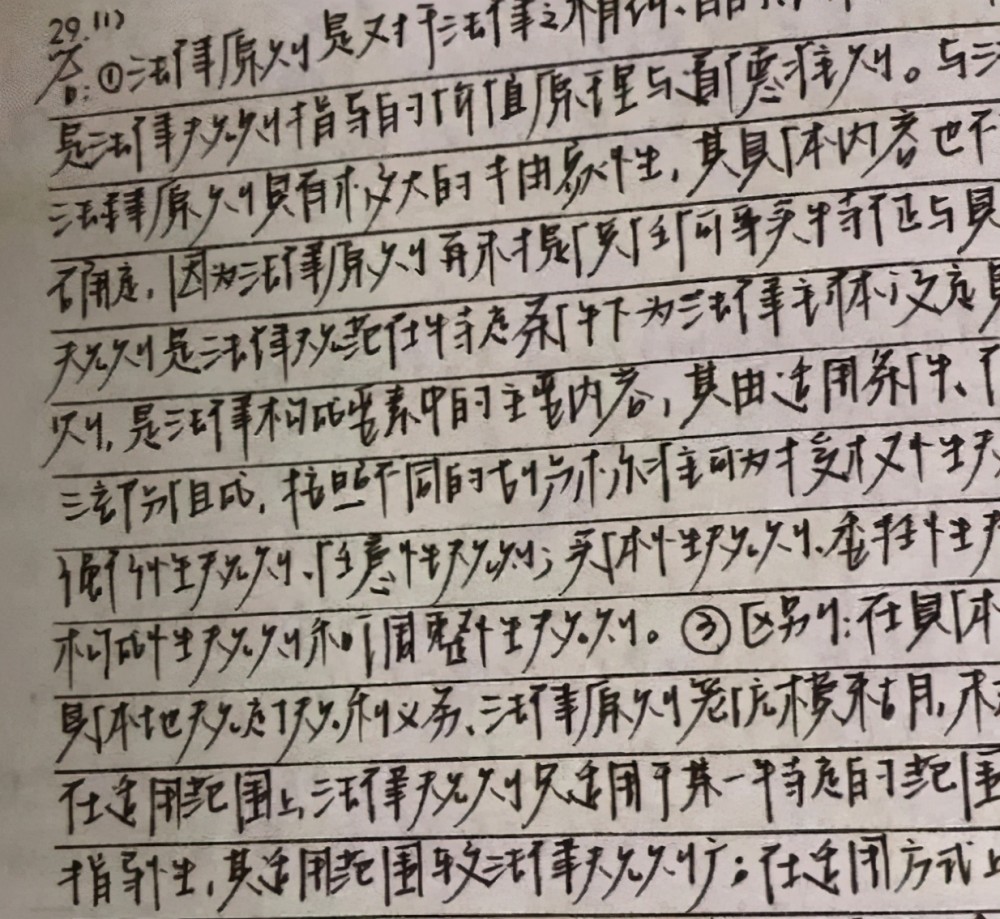 29.(1)
答:①法律原则是对于法律之
是法律规则指导的价值原理与道德准则。与法
法律原则具有较大的抽象性,其具体内容也不
确定,因为法律原则再未提供任何事实特征与具
规则是法律规范在特定条件下为法律主体设定具
则,是法律构成要素中的主要内容,其由适用条件、
三部分组成,按照不同的划分标准可为授权性规
强行性规则、任意性规则;实体性规则、委任性规
构成性规则和调整性规则。③区别:在具体
具体地规定了权利义务、法律原则宽广模糊,未
在适用范围上,法律规则只适用于某一特定的范围
指导性,其适用范围较法律规则广;在适用方式上